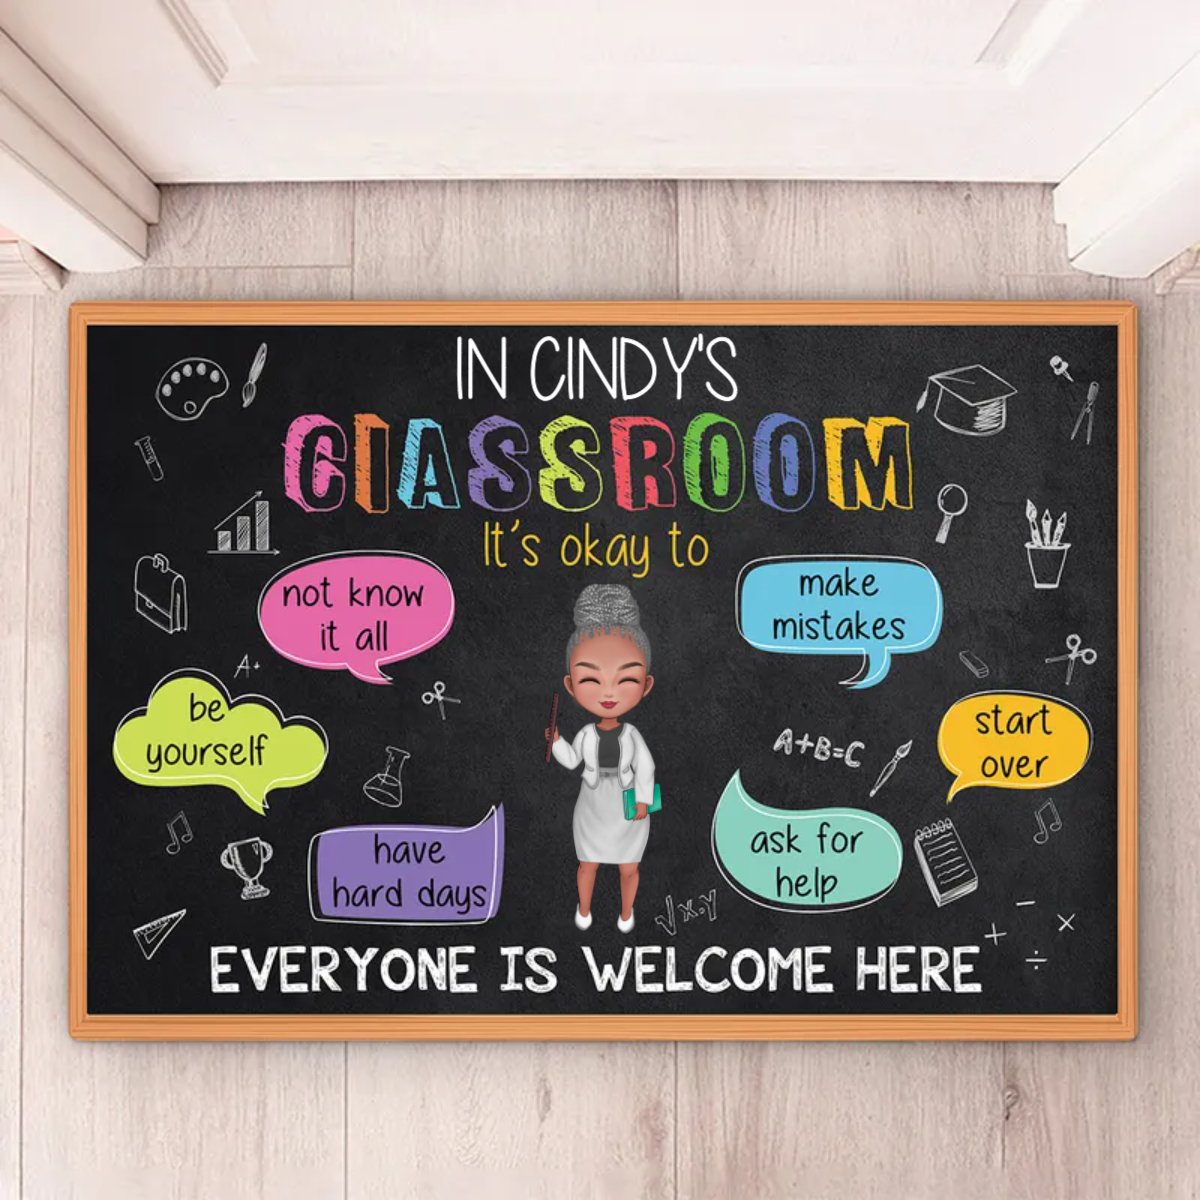 IN CINDY'S
ClASSROOM
It's okay to
not know
it all
make
mistakes
A+
be
yourself
start
over
A+B=C
have
hard days
ask for
help
√x.y
EVERYONE IS WELCOME HERE
+ − × ÷